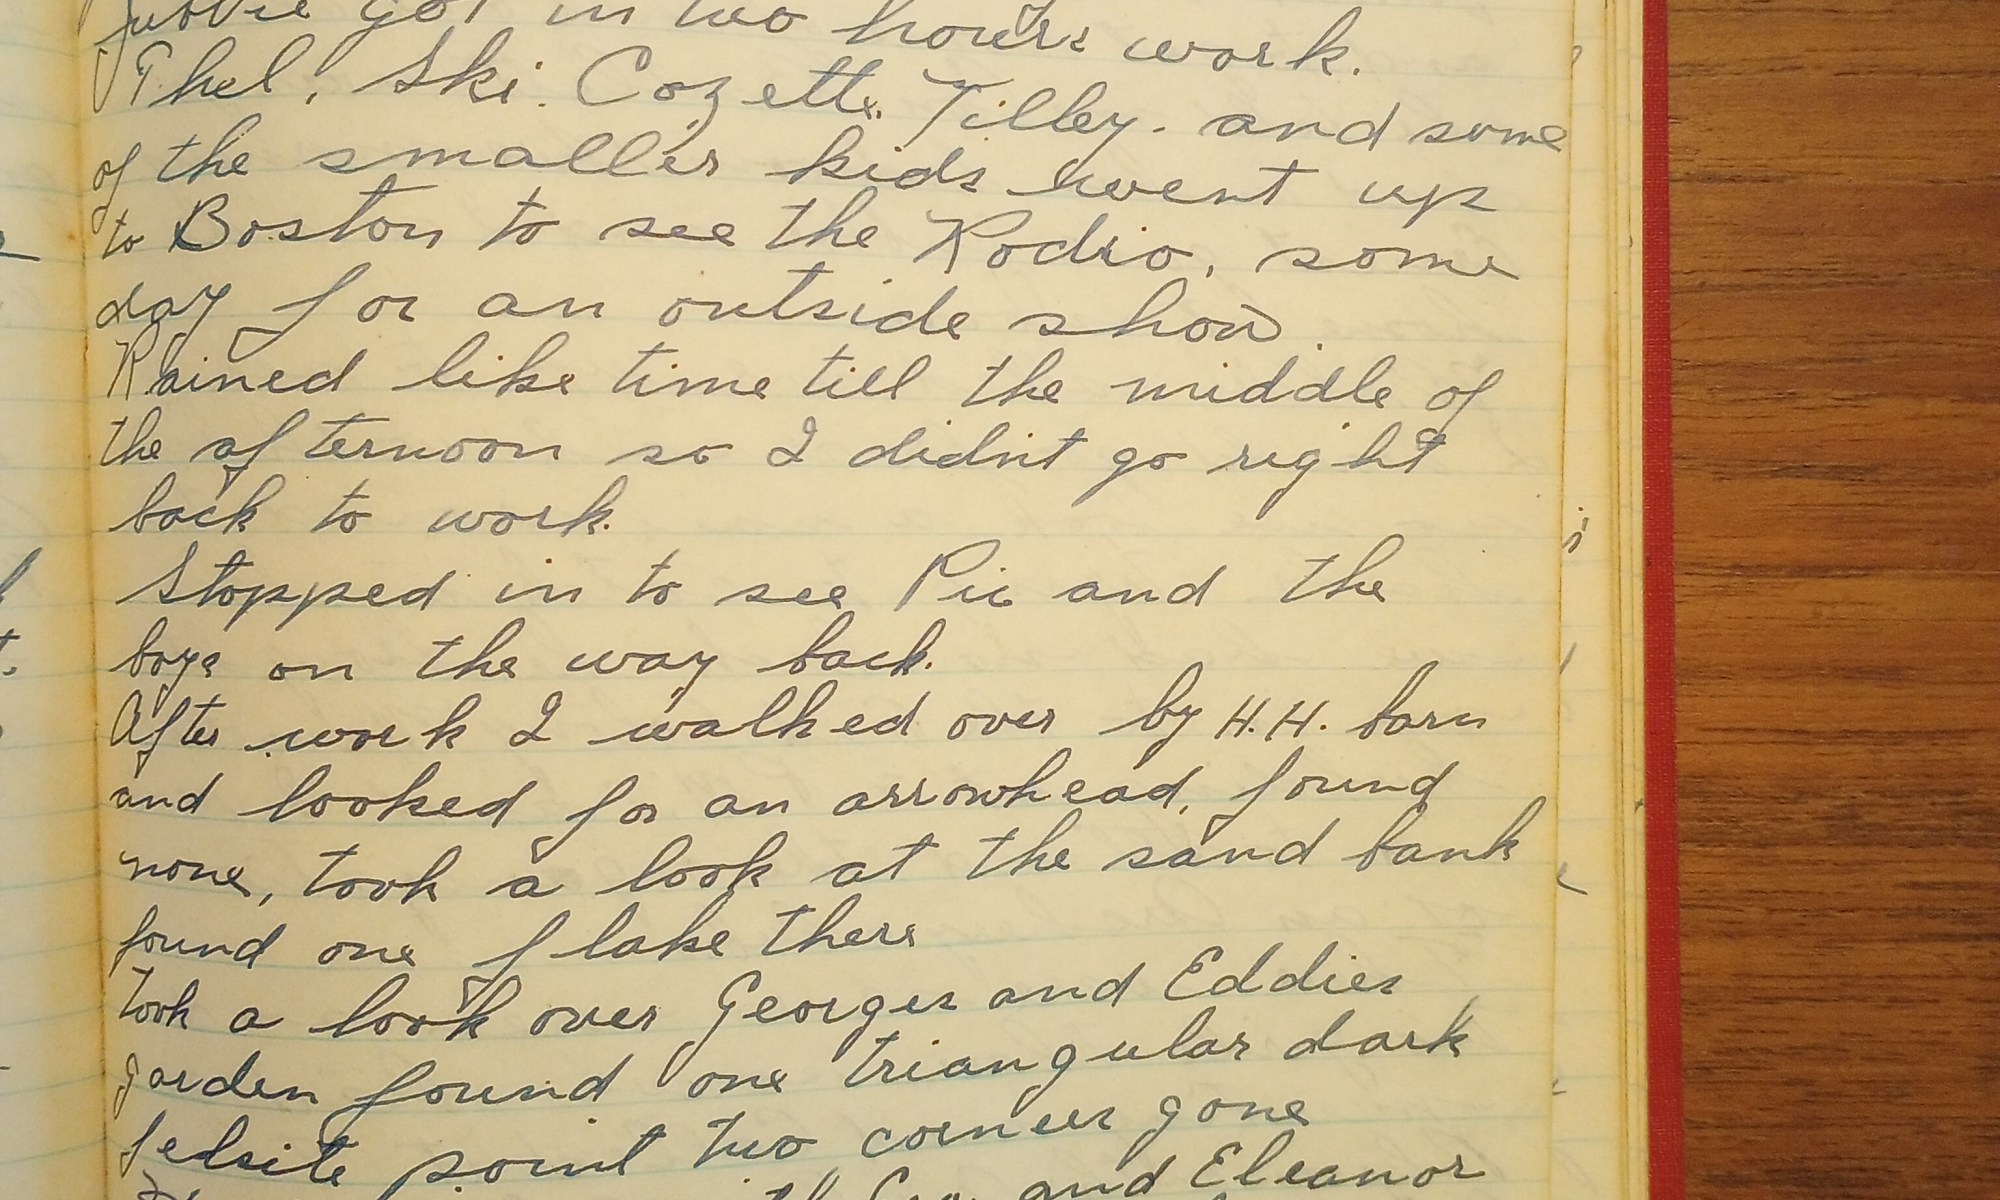 got in two hours work.
Thel, Ski. Cozette. Tilley. and some
of the smaller kids went up
to Boston to see the Rodio, some
day for an outside show.
Rained like time till the middle of
the afternoon so I didn't go right
back to work.
Stopped in to see Pie and the
boys on the way back.
After work I walked over by H.H. barn
and looked for an arrowhead, found
none, took a look at the sand bank
found one flake there
Took a look over Georges and Eddies
garden found one triangular dark
felsite point two corners gone
and Eleanor